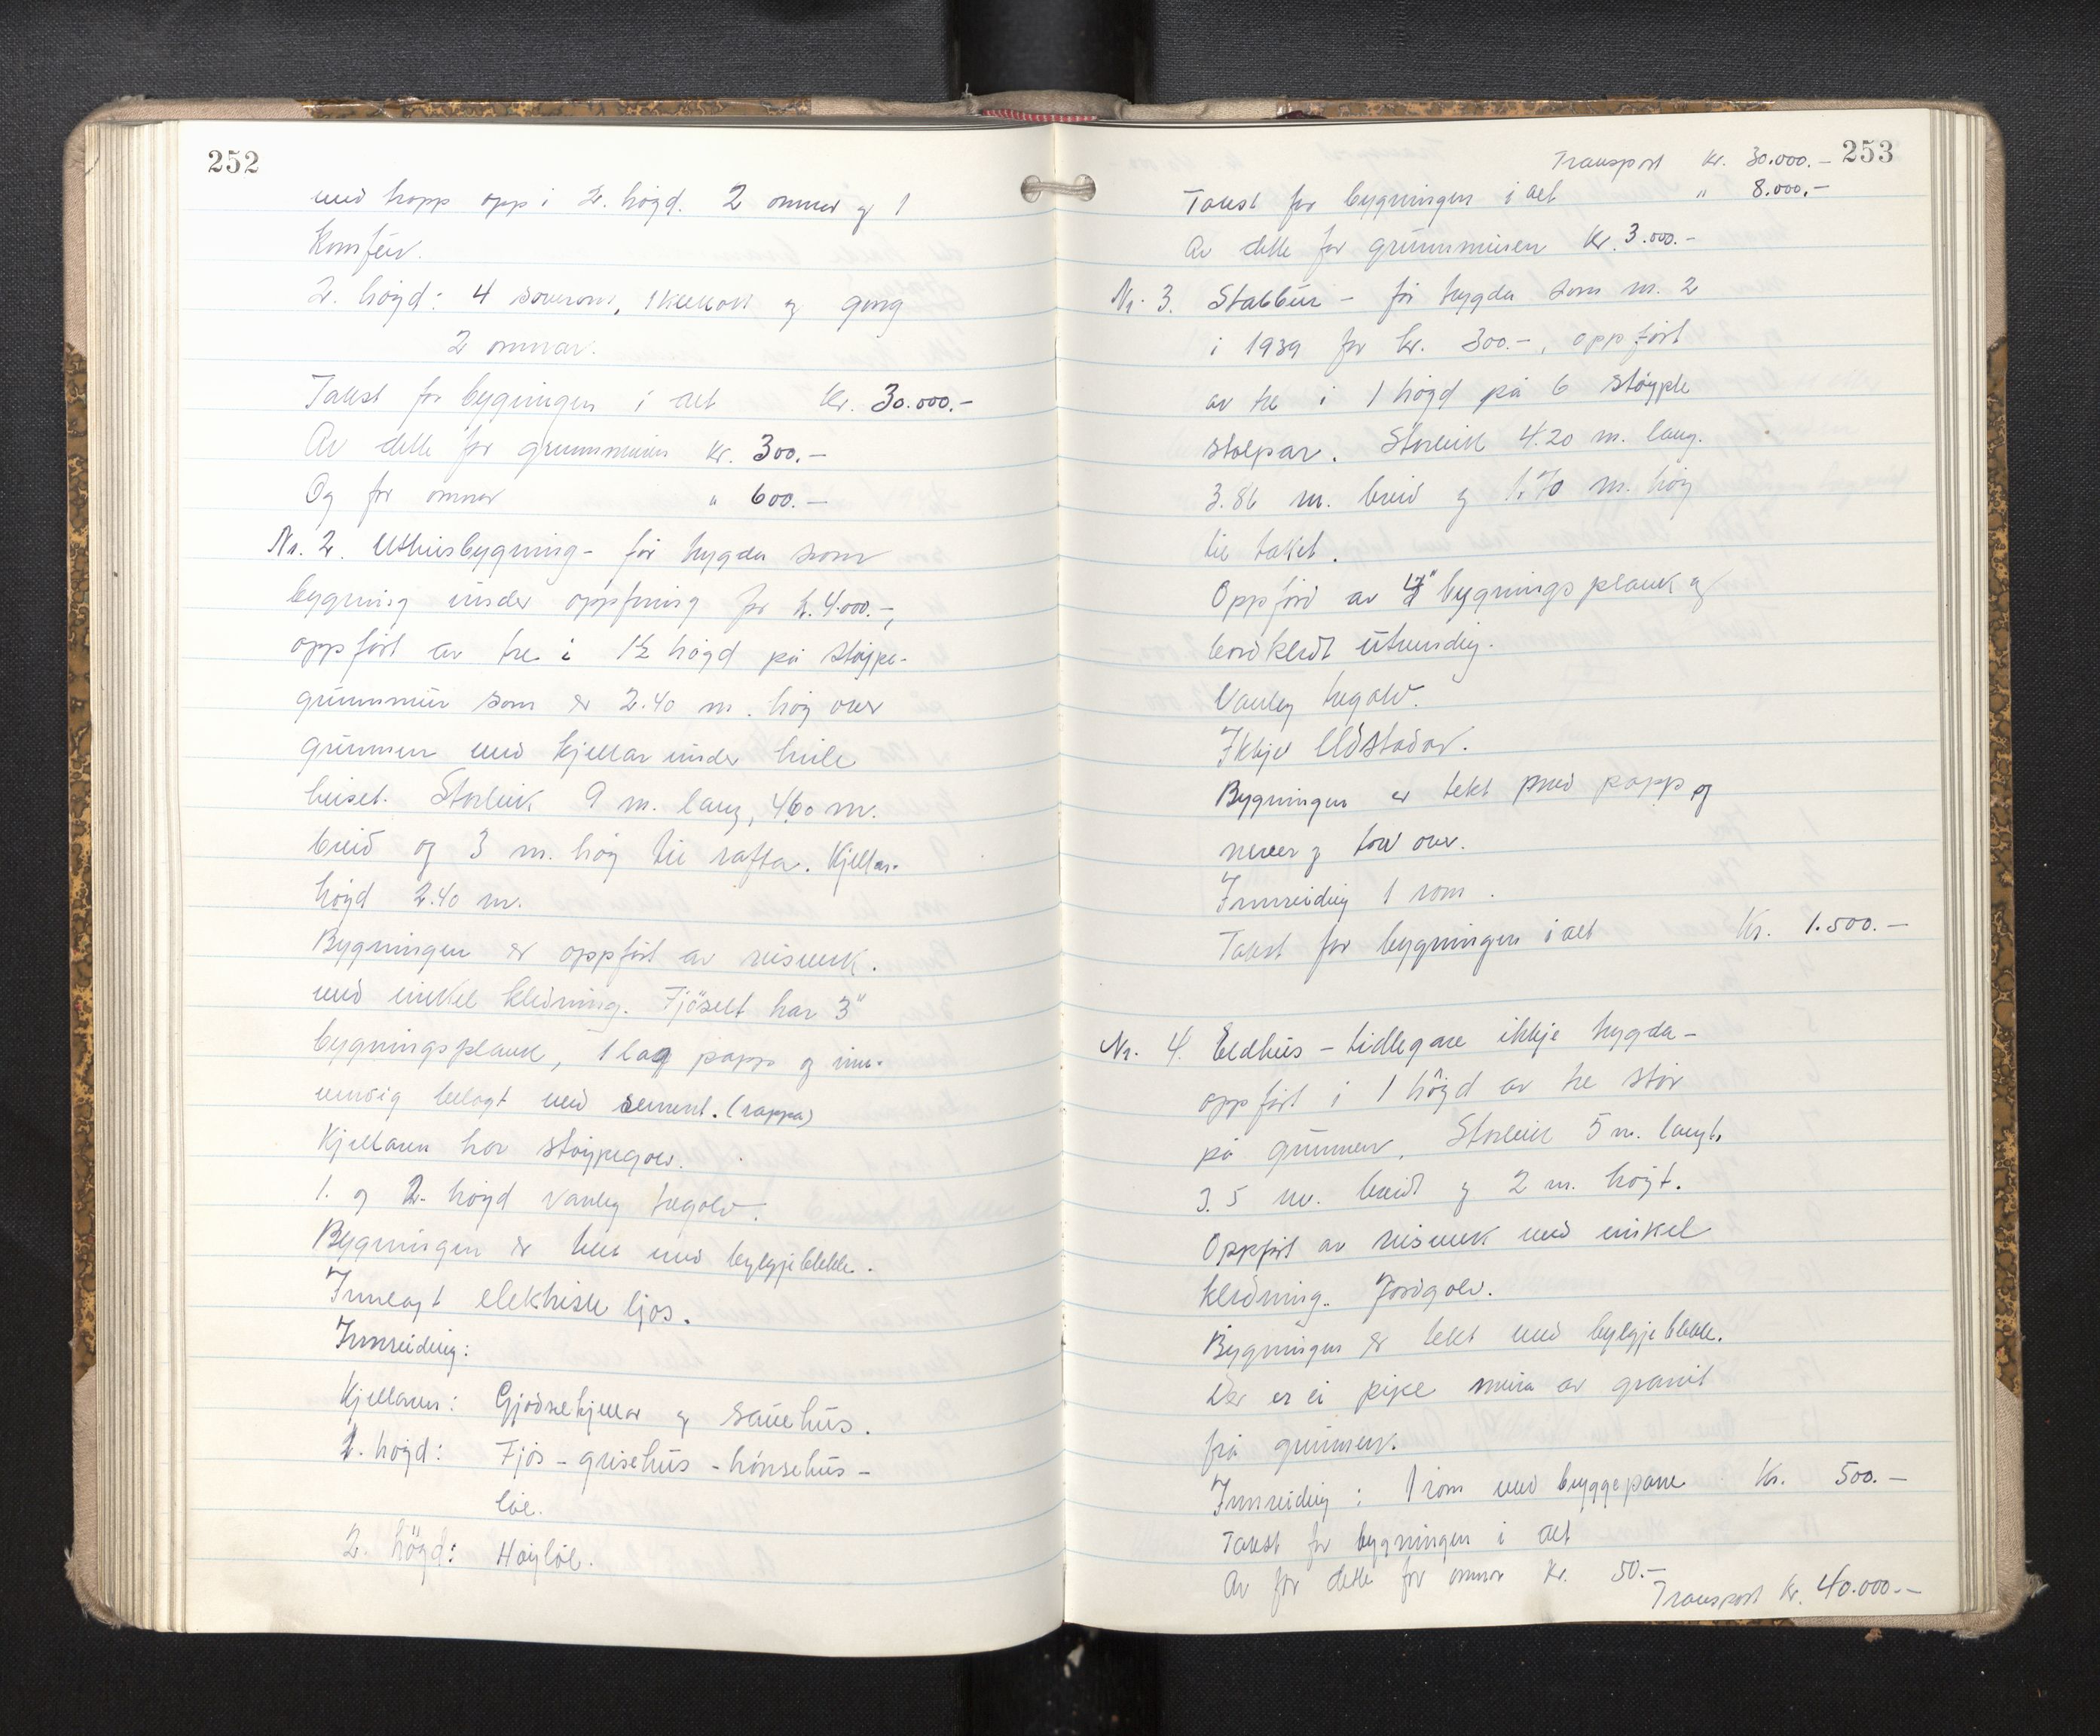 252
med trapp opp i 2. högd. 2 omnar og 1
Komfur.
2. högd: 4 soverom, 1 kleskott og gang
2 omnar.
Takst for bygningen i alt Kr. 30.000.-
Av dette for grunnmuren Kr. 300.-
Og for omnar " 600.-
Nr. 2. Uthusbygning - för trygda som
bygning under oppföring for kr. 4.000.-,
oppfört av tre i 1½ högd på støype-
grunnmur som er 2.40 m. høg over
grunnen med kjellar under heile
huset. Storleik 9 m. lang, 4.60 m.
breid og 3 m. høg til rafta. Kjellar-
högd 2.40 m.
Bygningen er oppfört av reisverk.
med enkel kledning. Fjöset har 3"
bygningsplank, 1 lag papp og inn-
vendig belagt med sement. (rappa)
Kjellaren har støypegolv.
1. og 2. högd vanleg tregolv.
Bygningen er tekt med bylgjeblekk.
Innlagt elektrisk ljos.
Innreiding:
Kjellaren: Gjødselkjellar og sauehus.
1. högd: Fjös - grisehus - hönsehus -
löe.
2. högd: Høyløe.
253
Transport Kr. 30.000.-
Takst for bygningen i alt " 8.000.-
Av dette for grunnmuren Kr. 3.000.-
Nr. 3. Stabbur - för trygda som nr. 2
i 1939 for kr. 300.-, oppfört
av tre i 1 högd på 6 støypte
stolpar. Storleik 4.20 m. lang.
3.86 m. breid og 1.70 m. høg
til taket.
Oppförd av bygningsplank og
bordkledt utvendig.
Vanleg tregolv.
Ikkje eldstadar.
Bygningen er tekt med papp og
never og torv over.
Innreiding 1 rom.
Takst for bygningen i alt Kr. 1.500.-
Nr. 4. Eldhus - tidlegare ikkje trygda -
oppfört i 1 högd av tre står
på grunnen. Storleik 5 m. langt,
3.5 m. breidt og 2 m. høgt.
Oppfört av reisverk med enkel
kledning. Jordgolv.
Bygningen er tekt med bylgjeblekk.
Der er ei pipe mura av granit
frå grunnen.
Innreiding: 1 rom med bryggepanne Kr. 500.-
Takst for bygningen i alt
Av för dette for omnar Kr. 50.-
Transport Kr. 40.000.-